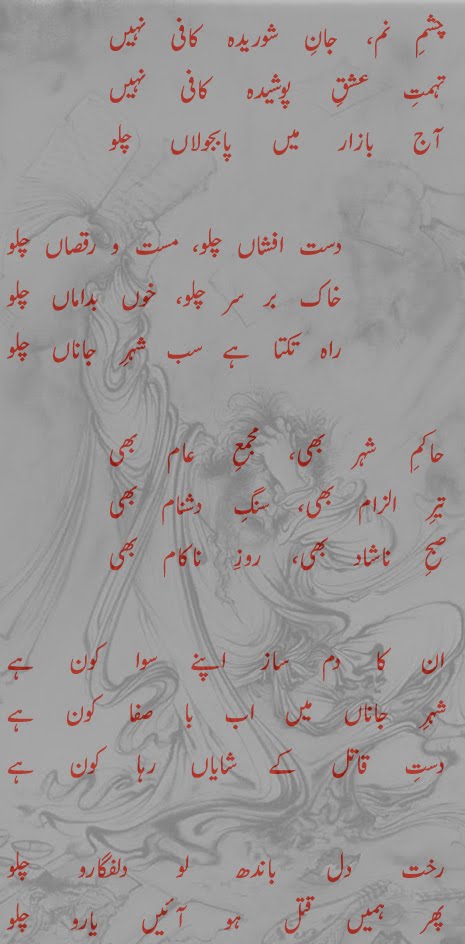 چشمِ نم، جانِ شوریدہ کافی نہیں
تہمتِ عشقِ پوشیدہ کافی نہیں
آج بازار میں پابجولاں چلو
دست افشاں چلو، مست و رقصاں چلو
خاک بر سر چلو، خوں بداماں چلو
راہ تکتا ہے سب شہرِ جاناں چلو
حاکمِ شہر بھی، مجمعِ عام بھی
تیرِ الزام بھی، سنگِ دشنام بھی
صبحِ ناشاد بھی، روزِ ناکام بھی
ان کا دم ساز اپنے سوا کون ہے
شہرِ جاناں میں اب با صفا کون ہے
دستِ قاتل کے شایاں رہا کون ہے
رخت دل باندھ لو دلفگارو چلو
پھر ہمیں قتل ہو آئیں یارو چلو